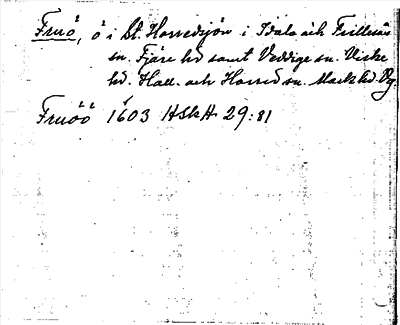 Fruö, ö i St Horredsjön i Idala och Frillesås
sn. Fjäre hd samt Veddige sn. Viske
hd. Hall. och Horred sn. Mark hd Vg.
Fruöö 1603 HSH 29:81